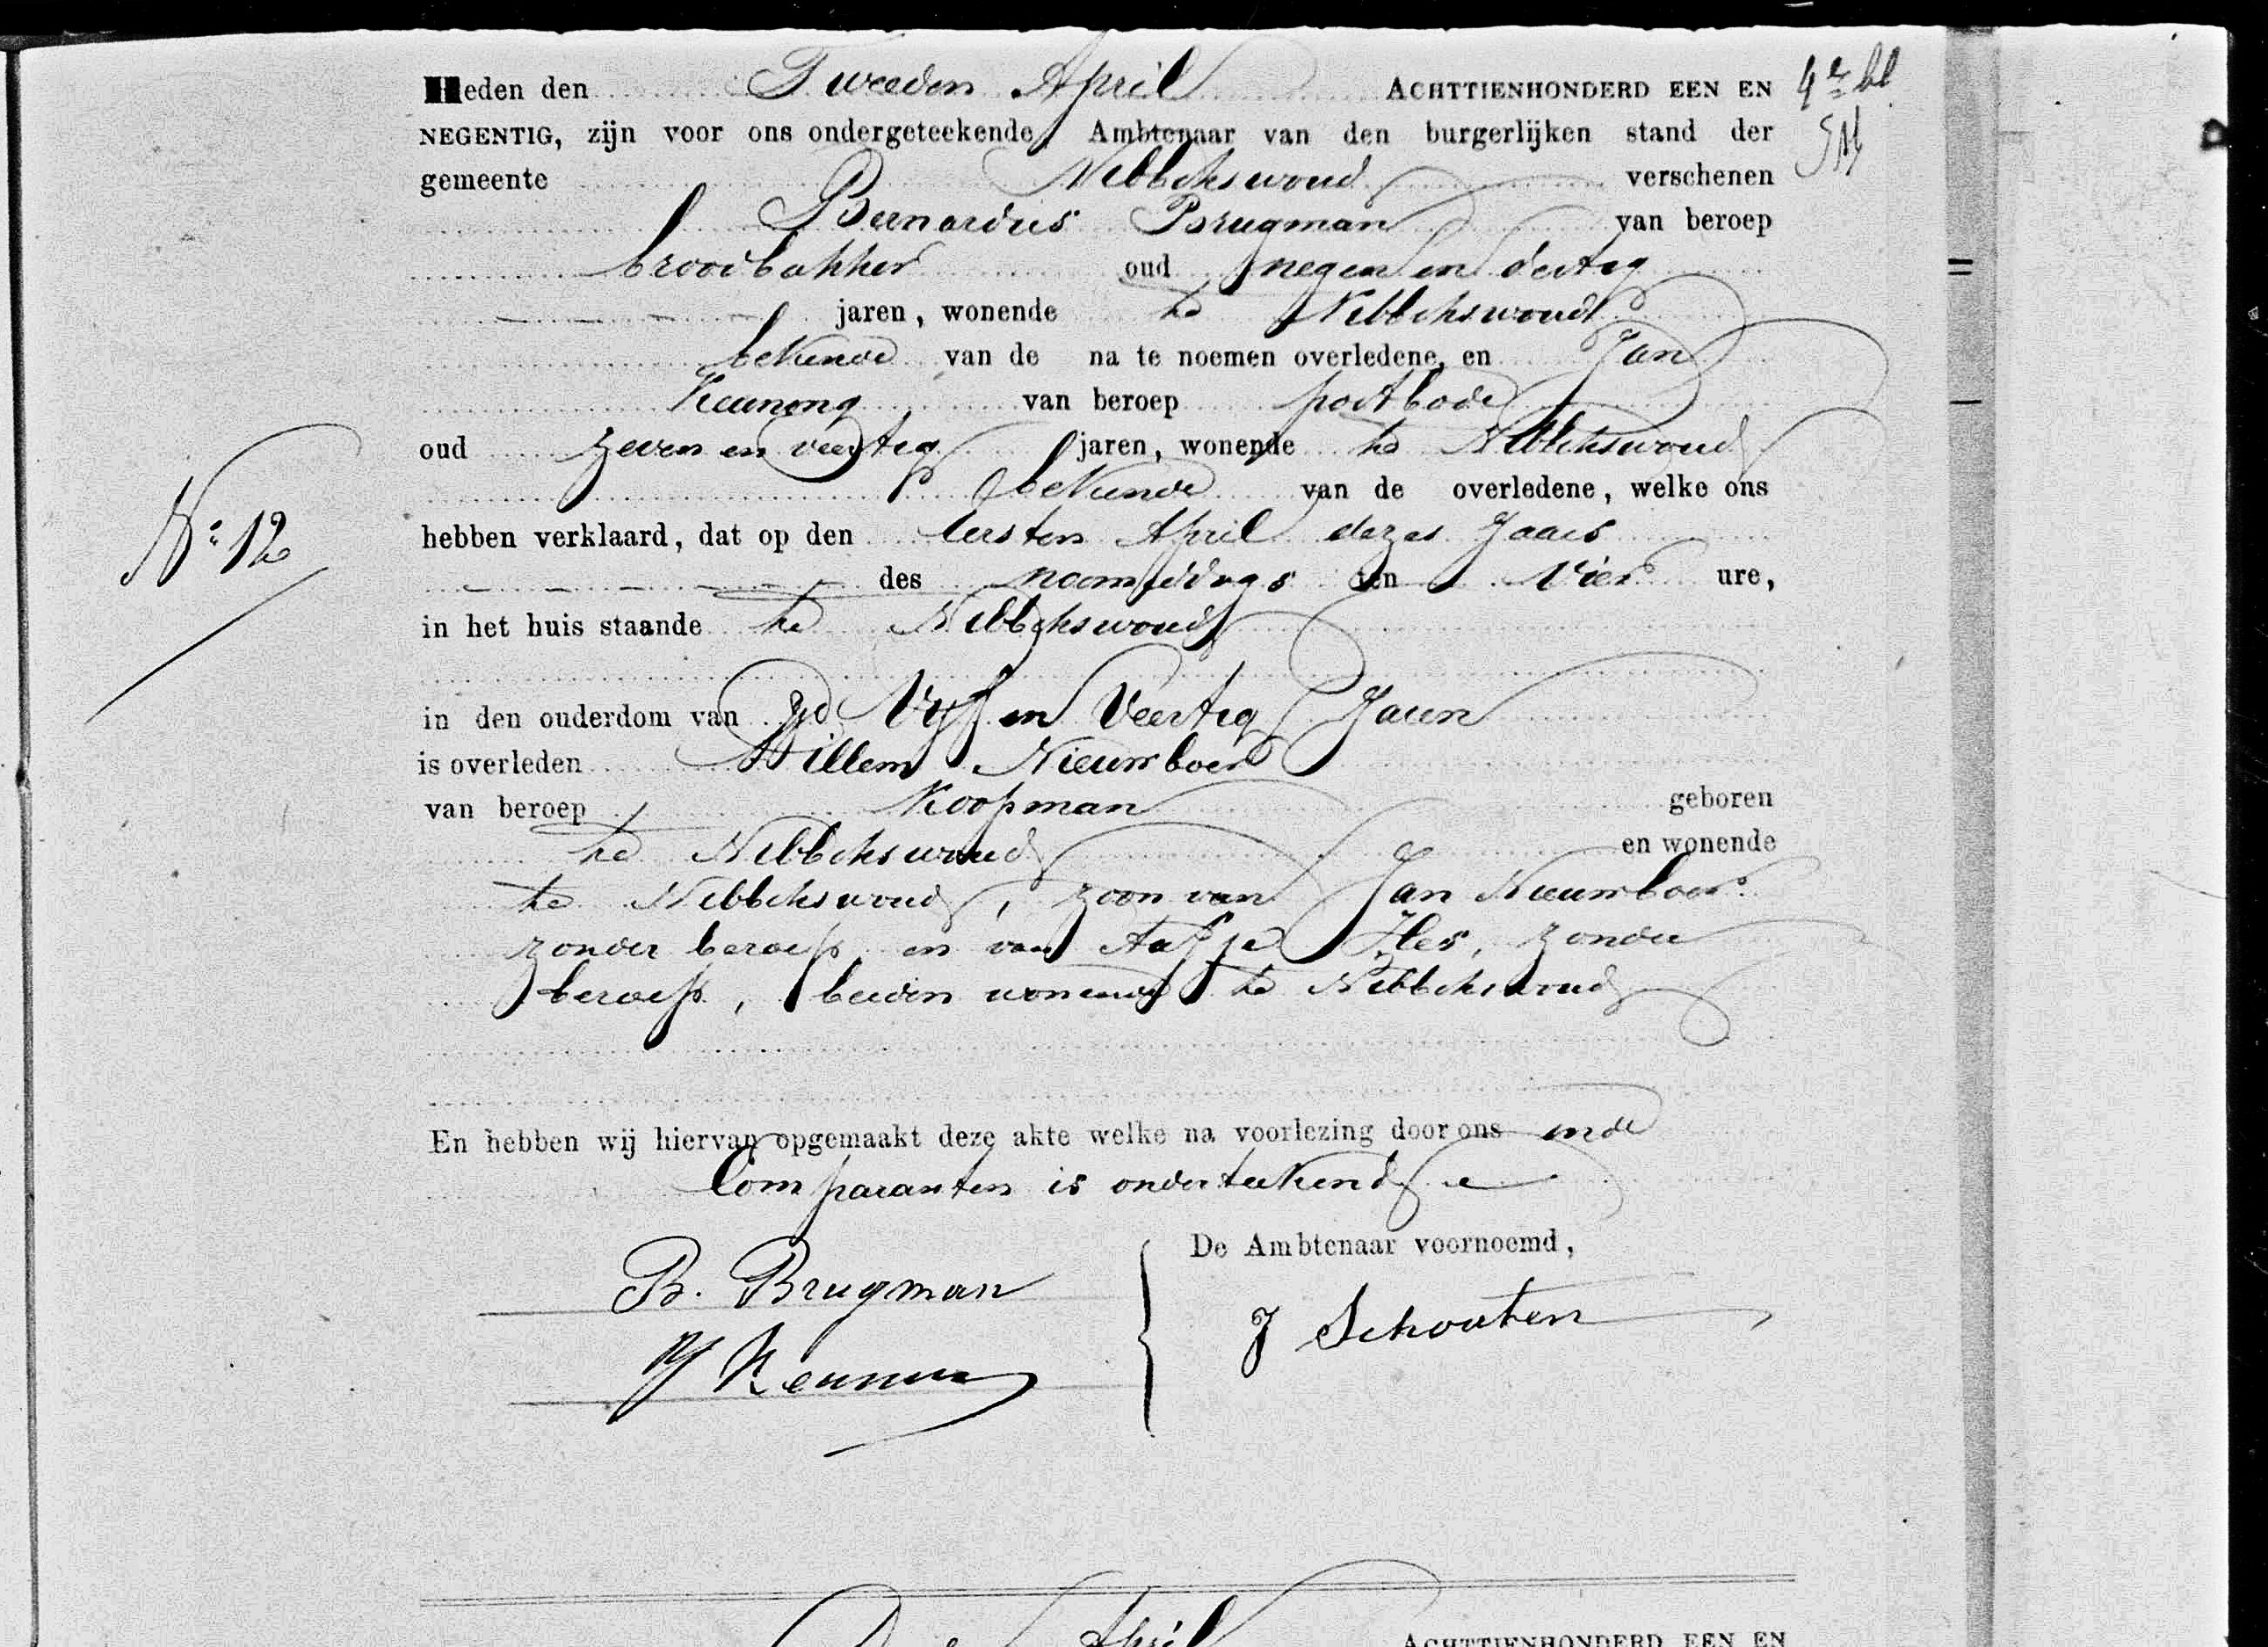 Heden den Tweeden April ACHTTIENHONDERD EEN EN
NEGENTIG, zijn voor ons ondergeteekende, Ambtenaar van den burgerlijken stand der
gemeente Nibbikswoud verschenen
Bernardus Brugman van beroep
broodbakker oud negen en dertig
jaren, wonende te Nibbikswoud
bekende van de na te noemen overledene, en Jan
Keuning van beroep postbode
oud zeven en veertig jaren, wonende te Nibbikswoud
bekende van de overledene, welke ons
No 12
hebben verklaard, dat op den eersten April dezes Jaars
des namiddags ten vier ure,
in het huis staande te Nibbikswoud
in den ouderdom van Vijf en Veertig Jaren
is overleden Willem Nieuwboer
van beroep Koopman geboren
te Nibbikswoud en wonende
te Nibbikswoud, zoon van Jan Nieuwboer
zonder beroep en van Aafje Iles, zonder
beroep, beiden wonende te Nibbikswoud
En hebben wij hiervan opgemaakt deze akte welke na voorlezing door ons en de
Comparanten is onderteekend
De Ambtenaar voornoemd,
B. Brugman
J Schouten
J Keuning
April
ACHTTIENHONDERD EEN EN